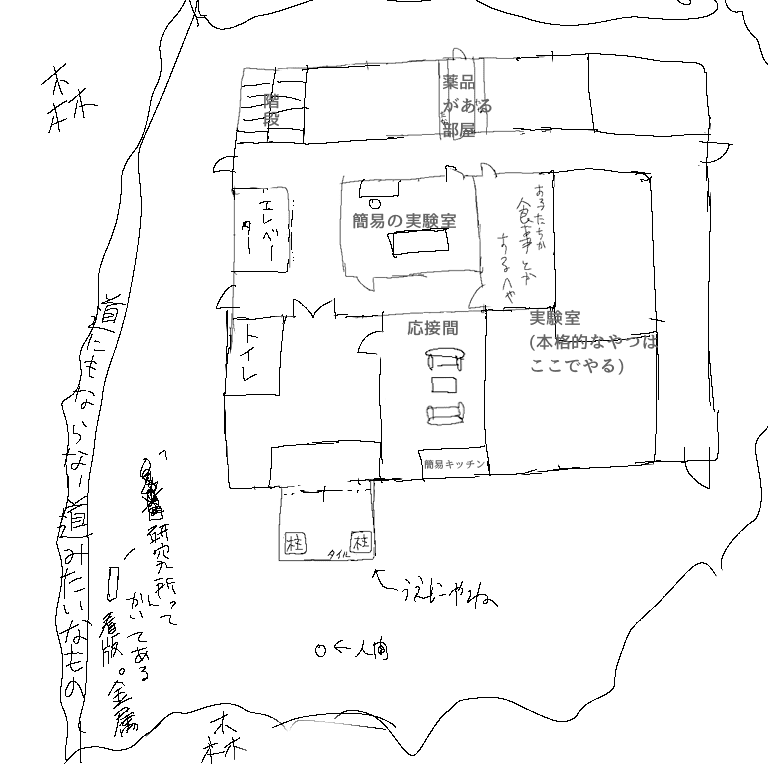 森
階
段
薬品
がある
部屋
エレベー
ター
簡易の実験室
あるたちが
食事とか
するへや
応接間
実験室
(本格的なやつは
ここでやる)
トイレ
簡易キッチン
柱
柱
タイル
うえにやね
人間
道にもならない道みたいなもの
研究所って
かいてある
看版。金属
森